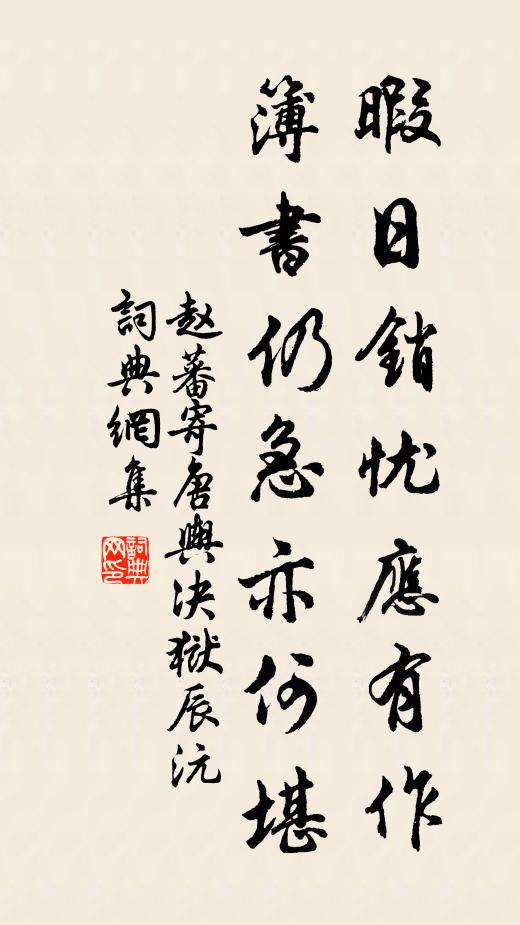 暇日銷忧應有作
簿書仍急亦何堪
赵蕃寄唐興决獄辰沅
詞典網集
詞典网印